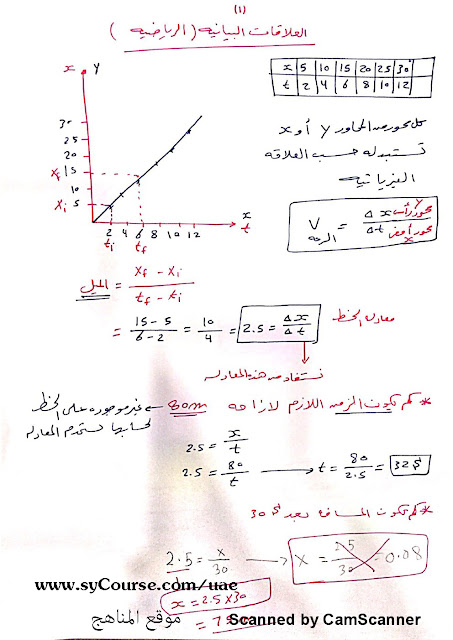 (1)
العلاقات البيانيه (الرياضيه)
x y
x 5 10 15 20 25 30
t 2 4 6 8 10 12
30
25
20
xf 15
10
xi 5
2 4 6 8 10 12
ti tf
x
t
كل محور من المحاور y أو x
تستبدله حسب العلاقه
الفيزيائيه
V = Δx / Δt
محور رأسي y
محور أفقي x
الميل = xf - xi / tf - ti
= 15 - 5 / 6 - 2 = 10 / 4 = 2.5 = Δx / Δt
معادله الخط
نستفاد من هذه المعادله
* كم يكون الزمن اللازم لازاحه 80m ← غير موجوده على الخط
لحسابها نستخدم المعادله
2.5 = x / t
2.5 = 80 / t → t = 80 / 2.5 = 32 s
* كم تكون المسافه بعد 30 s
2.5 = x / 30 → x = 2.5 / 30 = 0.08
x = 2.5 x 30
= 75
www.syCourse.com/uae
موقع المناهج
Scanned by CamScanner